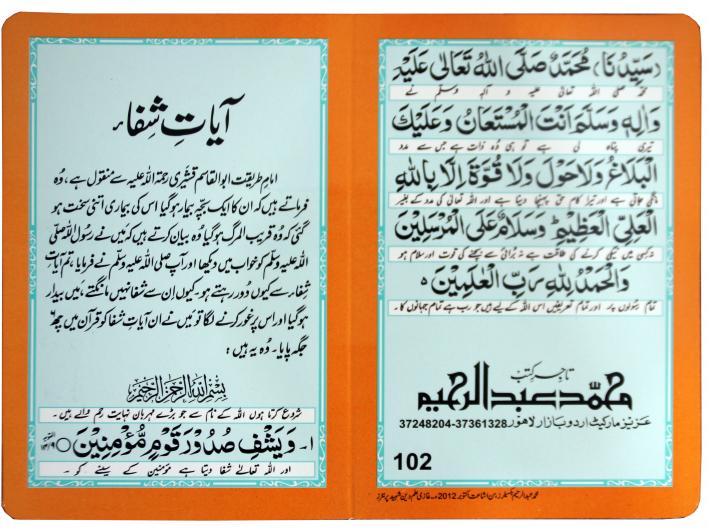 آیاتِ شِفاء
امامِ طریقت ابوالقاسم قشیری رحمۃ اللہ علیہ سے منقول ہے، وُہ
فرماتے ہیں کہ ان کا ایک بچّہ بیمار ہوگیا اس کی بیماری اتنی سخت ہو
گئی کہ وُہ قریب المرگ ہوگیا وُہ بیان کرتے ہیں کہ مَیں نے رسُول اللہ صلّی
اللہ علیہ وسلّم کو خواب میں دیکھا اور آپ صلی اللہ علیہ وسلّم نے فرمایا، تم آیاتِ
شِفاء سے کیوں دُور رہتے ہو۔ کیوں اِن سے شفا نہیں مانگتے، میں بیدار
ہوگیا اور اس پر غور کرنے لگا تو مَیں نے ان آیاتِ شفا کو قرآن میں چھ
جگہ پایا۔ وُہ یہ ہیں :
بِسْمِ اللهِ الرَّحْمٰنِ الرَّحِيْمِ
شروع کرتا ہوں اللہ کے نام سے جو بڑے مہربان نہایت رحم والے ہیں ۔
۱۔ وَيَشْفِ صُدُوْرَ قَوْمٍ مُّؤْمِنِيْنَ ○
اور اللہ تعالےٰ شفا دیتا ہے مؤمنین کے سینے کو ۔
(سَيِّدُنَا) مُحَمَّدٌ صَلَّى اللهُ تَعَالٰى عَلَيْهِ
محمّد صلی اللہ تعالیٰ علیہ و آلہٖ وسلم نے
وَاٰلِهٖ وَسَلَّمَ اَنْتَ الْمُسْتَعَانُ وَعَلَيْكَ
تیری پناہ لی ہے تو ہی وُہ ذات ہے جس سے مدد
الْبَلَاغُ وَلَا حَوْلَ وَلَا قُوَّةَ اِلَّا بِاللهِ
مانگی جاتی ہے اور تیرا کام حق پہنچا دینا ہے اور اللہ تعالیٰ کی مدد کے بغیر
الْعَلِيِّ الْعَظِيْمِ وَسَلَامٌ عَلَى الْمُرْسَلِيْنَ
نہ کسی میں نیکی کرنے کی طاقت ہے نہ بُرائی سے بچنے کی قوت اور سلام ہو
وَالْحَمْدُ لِلّٰهِ رَبِّ الْعٰلَمِيْنَ ه
تمام رسُولوں پر اور تمام تعریفیں اس اللہ کے لیے ہیں جو رب ہے تمام جہانوں کا ۔
تاجرِ کتب
محمّد عبد الرحیم
عزیز مارکیٹ اردو بازار لاہور 37361328-37248204
102
محمد عبدالرحیم اشاعت اکتوبر 2012ء۔ غازی علم دین شہید پرنٹرز